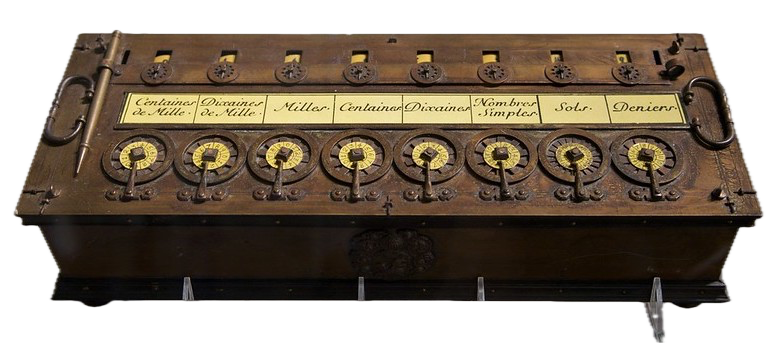 Centaines de Mille.
Dixaines de Mille.
Milles.
Centaines
Dixaines
Nombres Simples.
Sols.
Deniers.